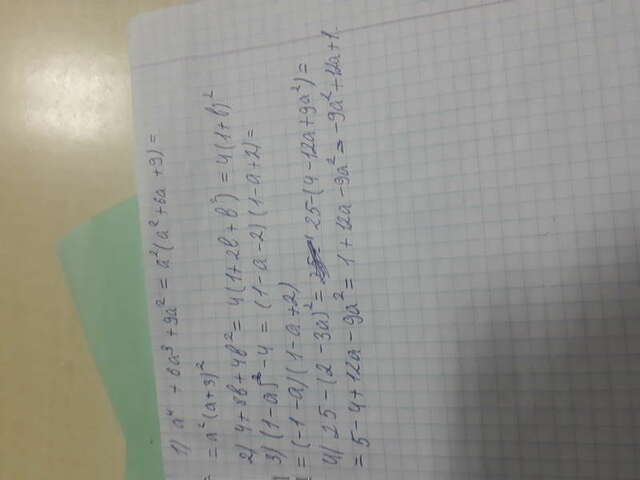 1) a⁴ + 6a³ + 9a² = a²(a² + 6a + 9) =
= a²(a+3)²
2) 4+8b+4b² = 4(1+2b+b²) = 4(1+b)²
3) (1-a)² - 4 = (1-a-2)(1-a+2) =
= (-1-a)(1-a+2)
4) 25-(2-3a)² = 25-(4-12a+9a²) =
= 5-4+12a-9a² = 1+12a-9a² = -9a²+12a+1.